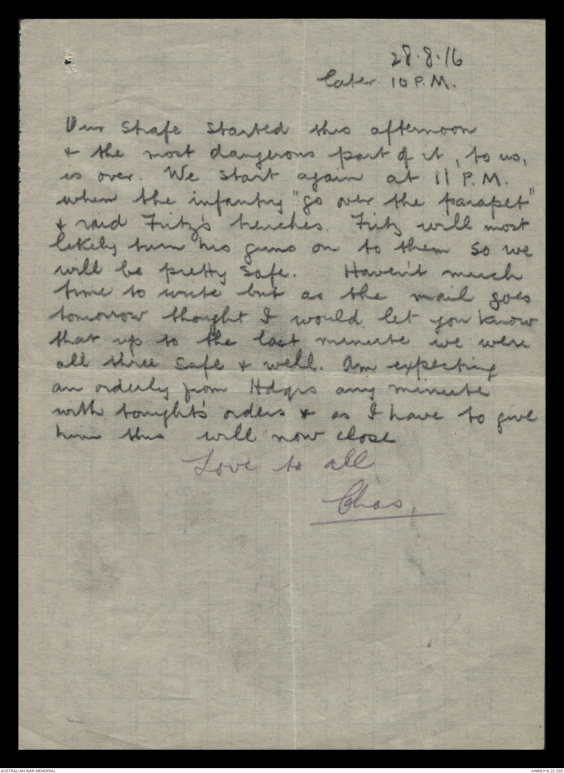 28.8.16
Later. 10 P.M.
Our Strafe started this afternoon
& the most dangerous part of it, to us,
is over. We start again at 11 P.M.
when the infantry "go over the parapet"
& raid Fritz's trenches. Fritz will most
likely turn his guns on to them so we
will be pretty safe. Haven't much
time to write but as the mail goes
tomorrow thought I would let you know
that up to the last minute we were
all three safe & well. Am expecting
an orderly from Hdqrs any minute
with tonight's orders & as I have to give
him this will now close
Love to all
Chas.
AUSTRALIAN WAR MEMORIAL